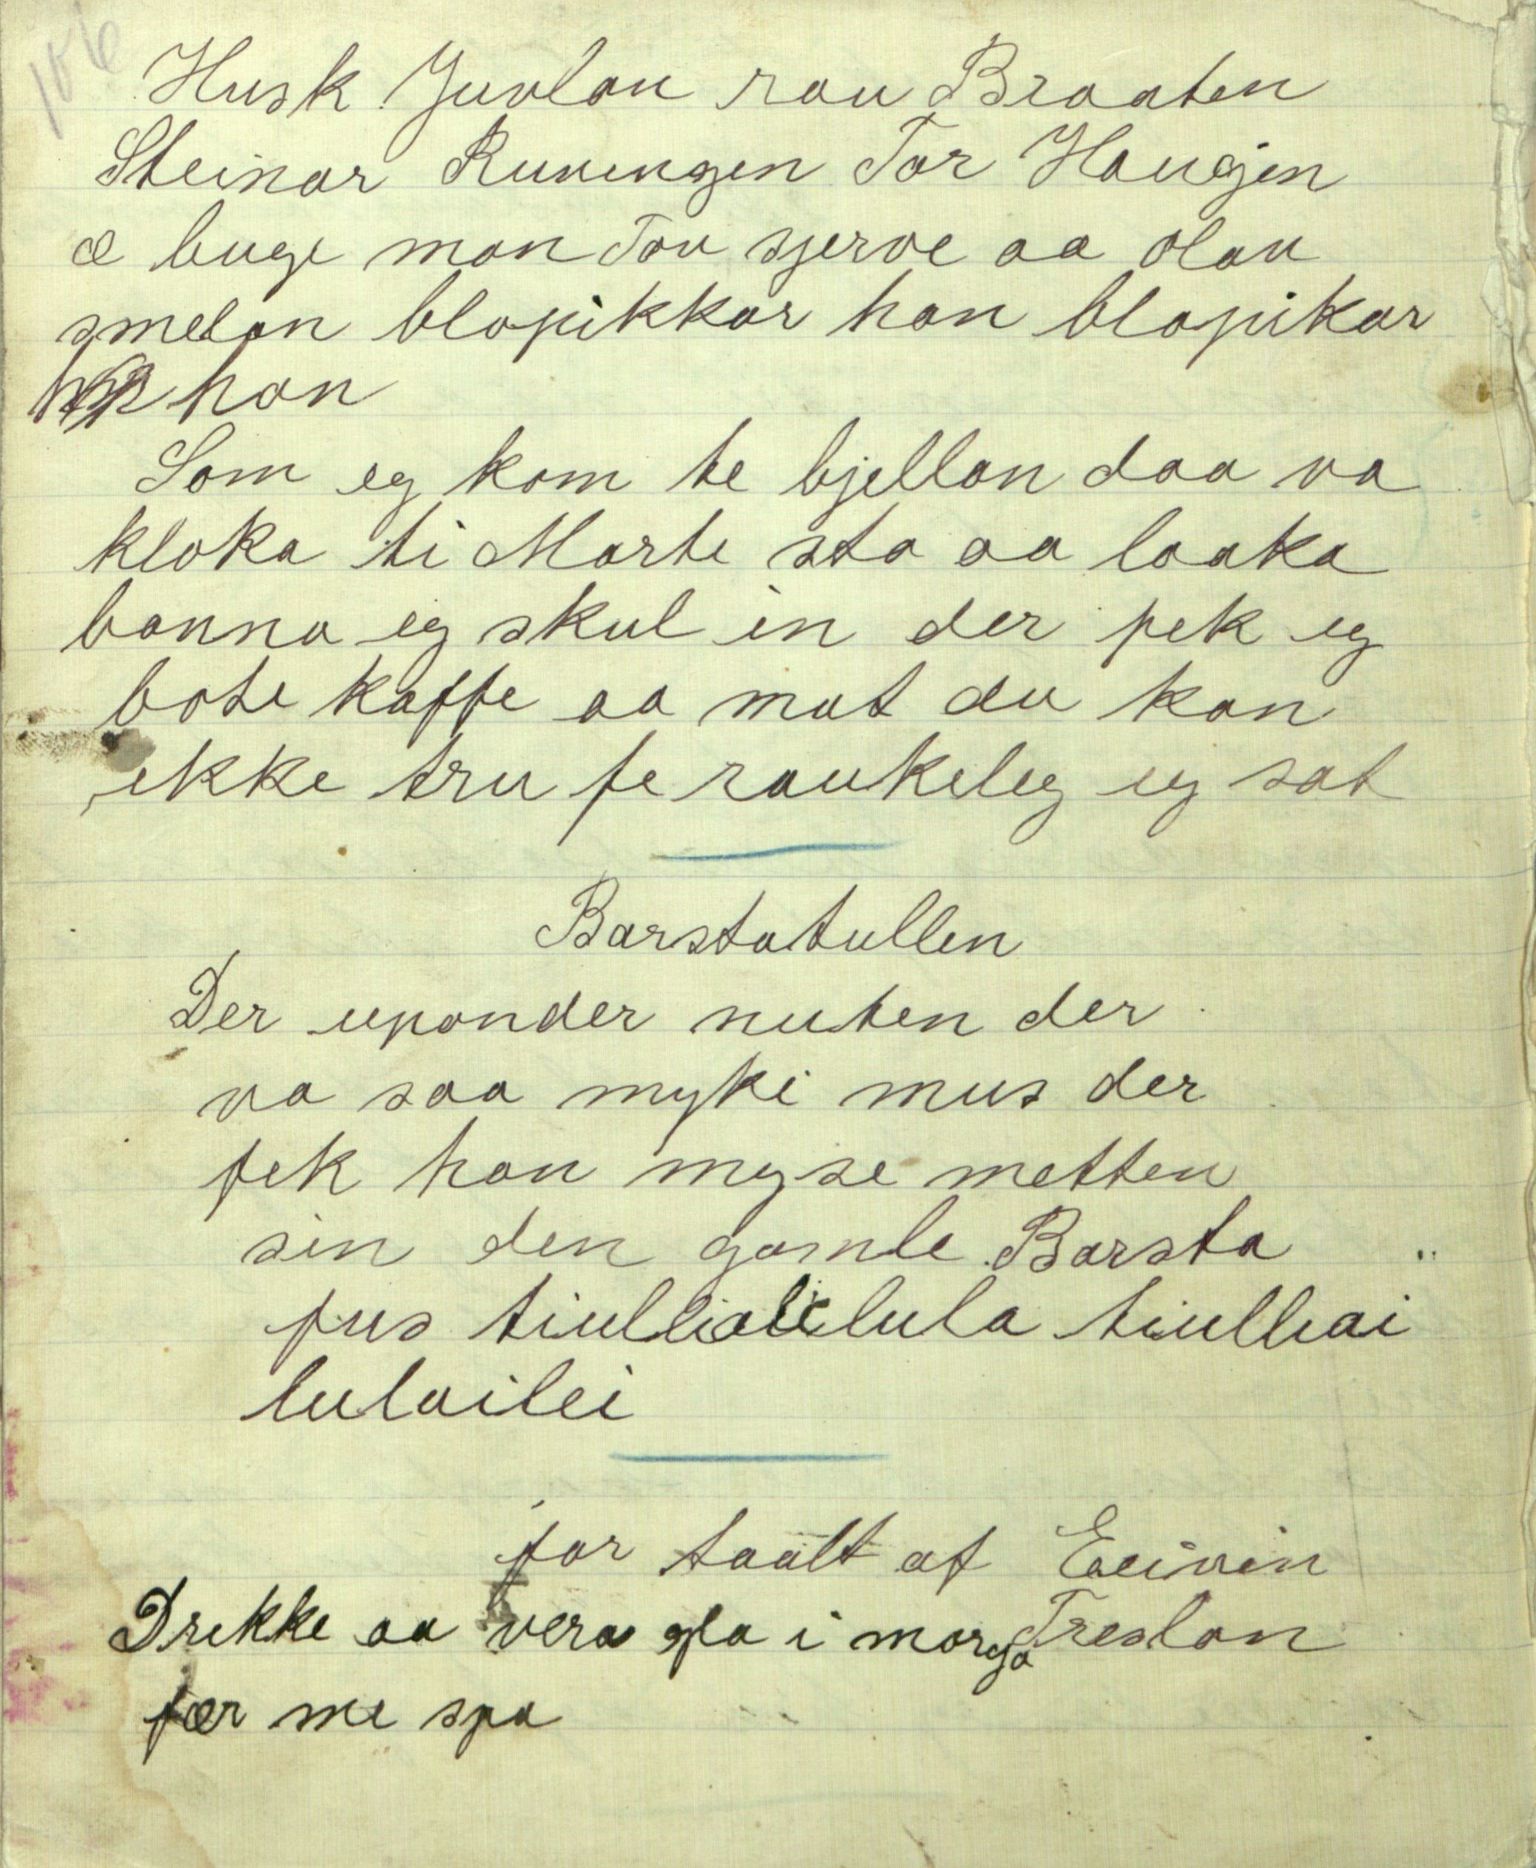 106
Husk Juvlan rau Braaten
Steinar Ruvengen Tor Haugjen
æ buge man Tov sjerve aa Olav
smedan blopikkar han blopikar
han
Som eg kom te bjellan daa va
kloka ti Marte sta aa laaka
banna eg skul in der fek eg
bote kaffe aa mat du kan
ikke tru fe raukeleg eg sat
Barstatullen
Der uponder nuten der
va saa myki mus der
fek han myse metten
sin den gamle Barsta
pus tiullialilula tiulliai
lulailei
for taalt af Eeivin
Drikke aa vera gla i morga Treslan
fær me spa